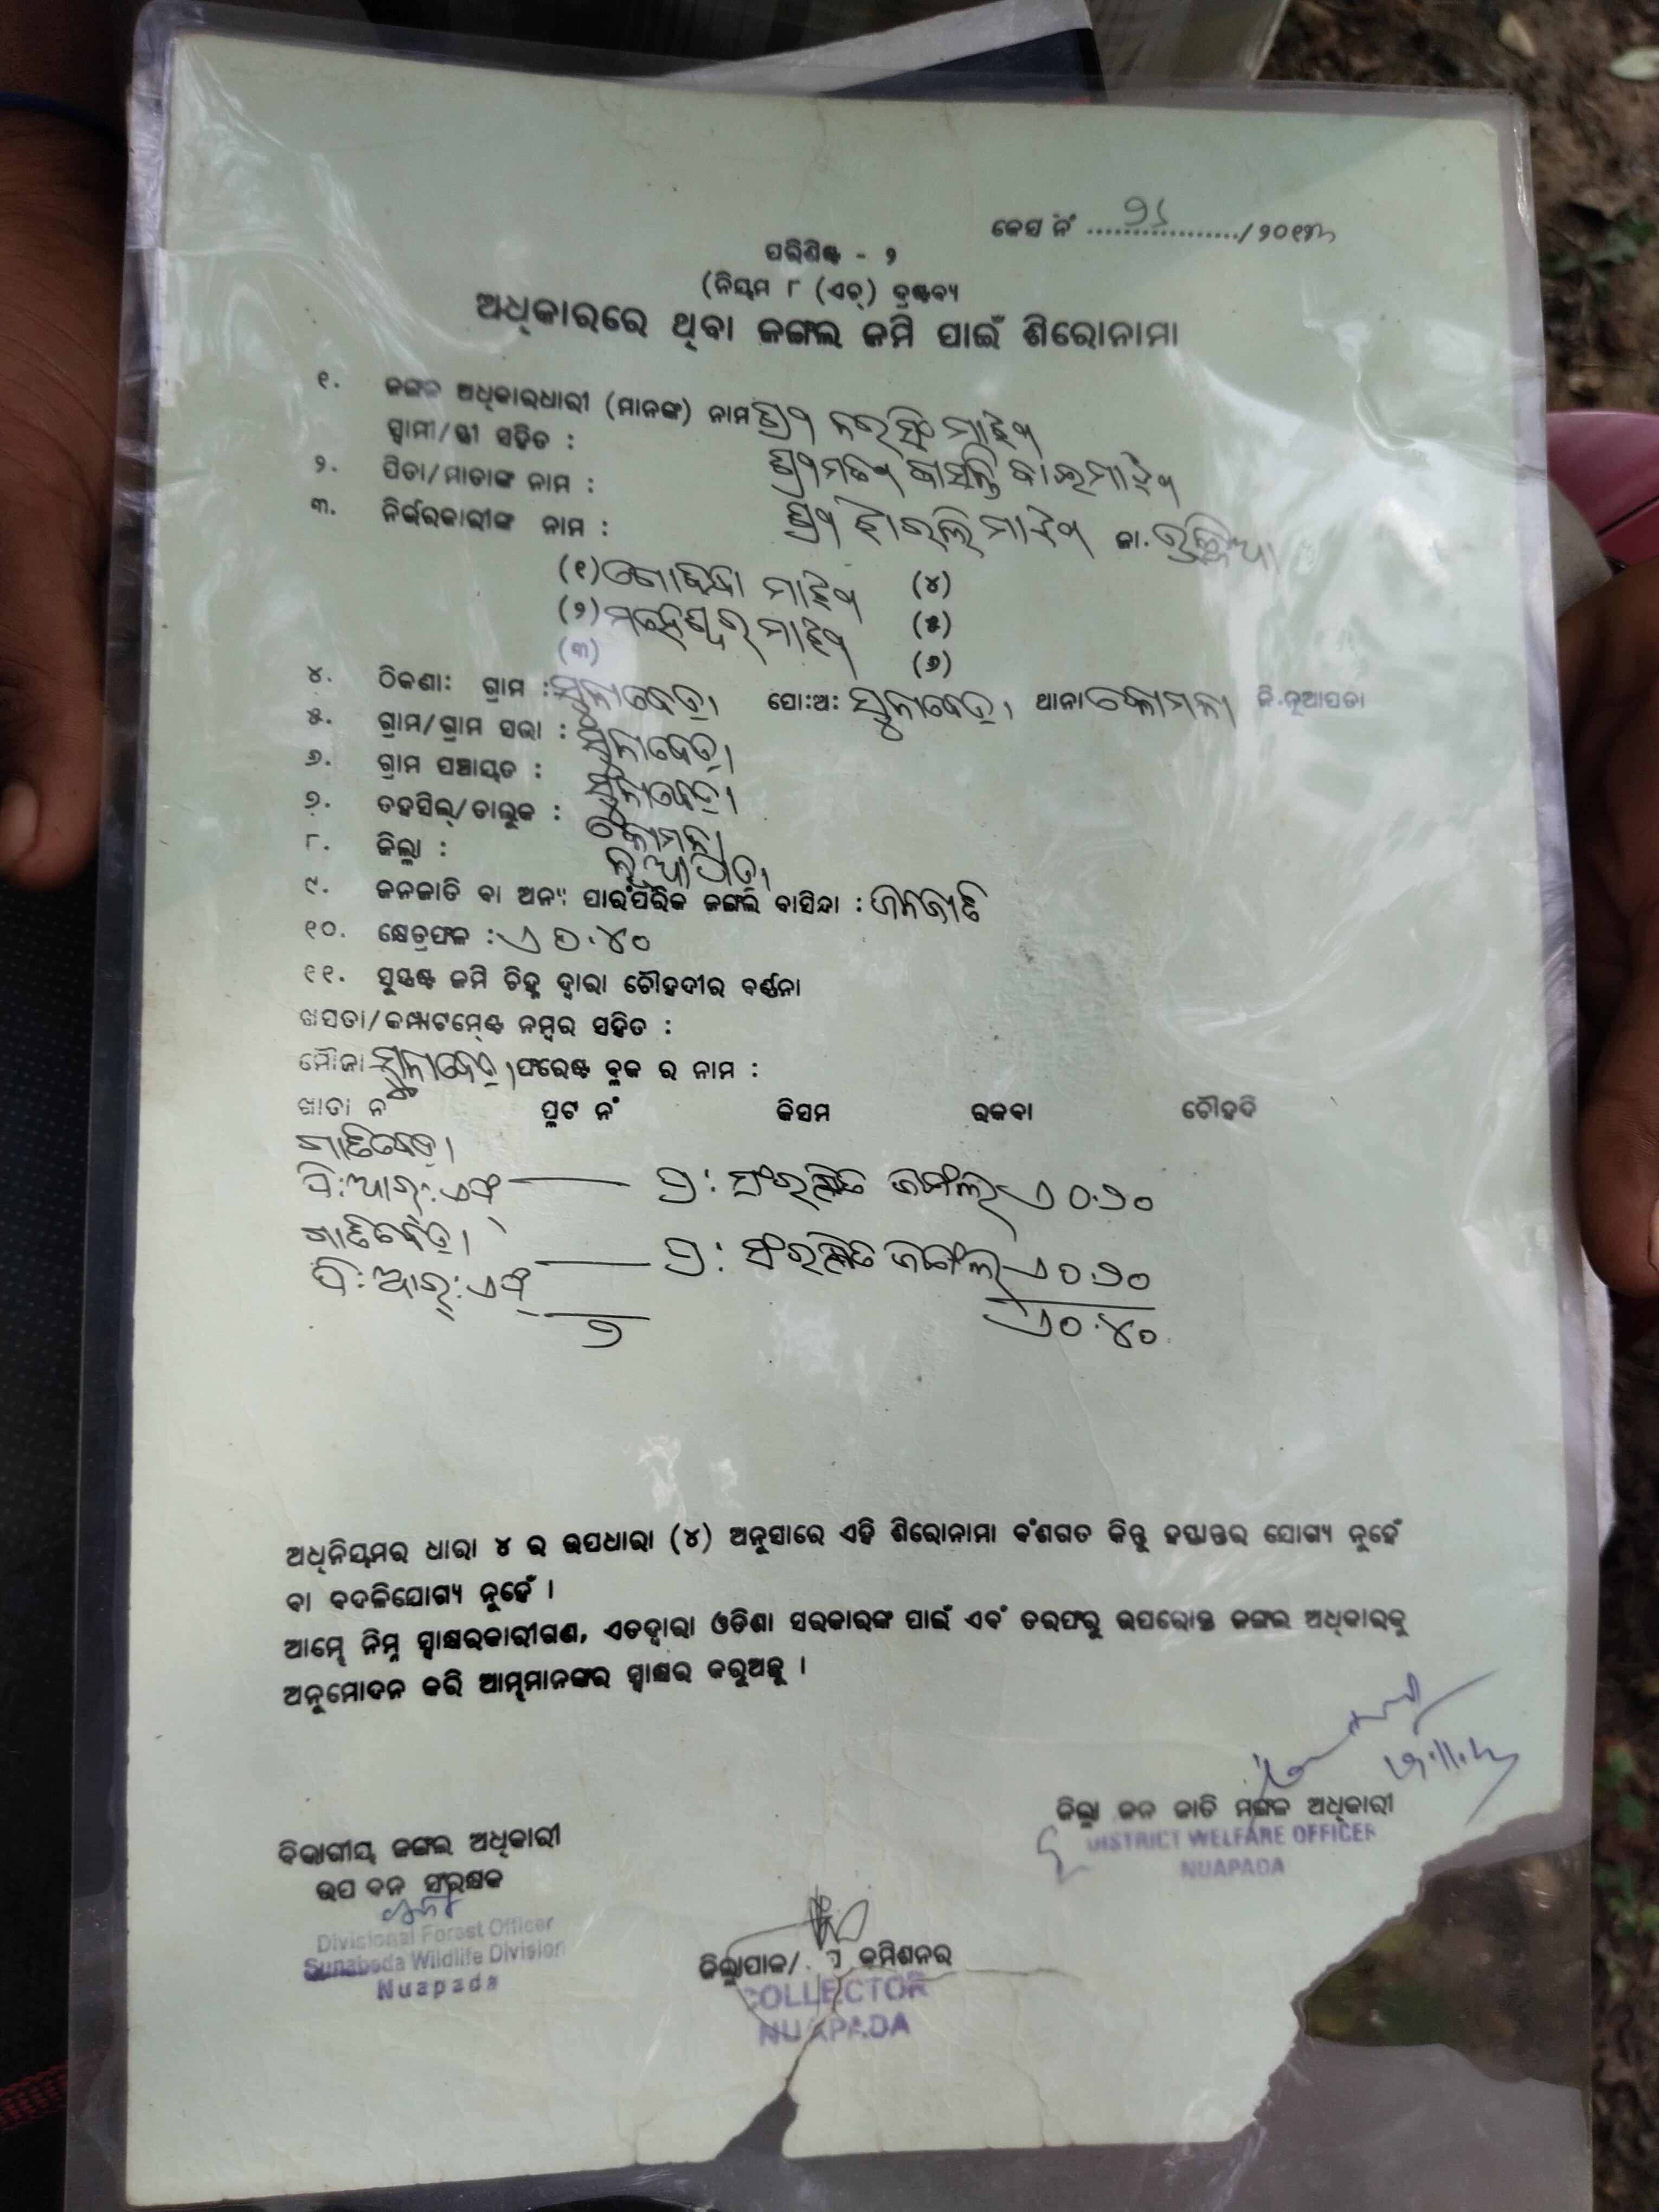 କେସ ନଂ ................../୨୦୧
ପରିଶିଷ୍ଟ - ୨
(ନିୟମ ୮ (ଏଚ୍) ଦ୍ରଷ୍ଟବ୍ୟ
ଅଧିକାରରେ ଥିବା ଜଙ୍ଗଲ ଜମି ପାଇଁ ଶିରୋନାମା
୧. ଜଙ୍ଗଲ ଅଧିକାରଧାରୀ (ମାନଙ୍କ) ନାମ ଶ୍ରୀ ନରସିଂ ମାଝୀ
ସ୍ୱାମୀ/ସ୍ତ୍ରୀ ସହିତ : ଶ୍ରୀମତୀ ବାସନ୍ତି ବାଇ ମାଝୀ
୨. ପିତା/ମାତାଙ୍କ ନାମ : ଶ୍ରୀ ମାଝୀ ଜା. ଭୁଞ୍ଜିଆ
୩. ନିର୍ଭରକାରୀଙ୍କ ନାମ :
(୧) ମାଝୀ (୪)
(୨) ମହେଶ୍ୱର ମାଝୀ (୫)
(୩) (୬)
୪. ଠିକଣା: ଗ୍ରାମ : ସୁନାବେଡ଼ା ପୋ:ଅ: ସୁନାବେଡ଼ା ଥାନା କୋମନା ଜି.ନୂଆପଡା
୫. ଗ୍ରାମ/ଗ୍ରାମ ସଭା : ସୁନାବେଡ଼ା
୬. ଗ୍ରାମ ପଞ୍ଚାୟତ : ସୁନାବେଡ଼ା
୭. ତହସିଲ୍/ତାଲୁକ : କୋମନା
୮. ଜିଲ୍ଲା : ନୂଆପଡ଼ା
୯. ଜନଜାତି ବା ଅନ୍ୟ ପାରଂପରିକ ଜଙ୍ଗଲ ବାସିନ୍ଦା : ଜନଜାତି
୧୦. କ୍ଷେତ୍ରଫଳ : ଏ ୦.୪୦
୧୧. ସୁସ୍ପଷ୍ଟ ଜମି ଚିହ୍ନ ଦ୍ୱାରା ଚୌହଦୀର ବର୍ଣ୍ଣନା
ଖସଡା/କମ୍ପାଟମେଣ୍ଟ ନମ୍ବର ସହିତ :
ମୌଜା ସୁନାବେଡ଼ା ଫରେଷ୍ଟ ବ୍ଲକ ର ନାମ :
ଖାତା ନଂ ପ୍ଲଟ ନଂ କିସମ ରକବା ଚୌହଦି
ପି:ଆର୍:ଏଫ୍ — ପ୍ର: ସଂରକ୍ଷିତ ଜଙ୍ଗଲ ଏ ୦.୨୦
ପି:ଆର୍:ଏଫ୍ — ପ୍ର: ସଂରକ୍ଷିତ ଜଙ୍ଗଲ ଏ ୦.୨୦
୨ ଏ ୦.୪୦
ଅଧିନିୟମର ଧାରା ୪ ର ଉପଧାରା (୪) ଅନୁସାରେ ଏହି ଶିରୋନାମା ବଂଶଗତ କିନ୍ତୁ ହସ୍ତାନ୍ତର ଯୋଗ୍ୟ ନୁହେଁ
ବା ବଦଳିଯୋଗ୍ୟ ନୁହେଁ ।
ଆମ୍ଭେ ନିମ୍ନ ସ୍ୱାକ୍ଷରକାରୀଗଣ, ଏତଦ୍ୱାରା ଓଡିଶା ସରକାରଙ୍କ ପାଇଁ ଏବଂ ତରଫରୁ ଉପରୋକ୍ତ ଜଙ୍ଗଲ ଅଧିକାରକୁ
ଅନୁମୋଦନ କରି ଆମ୍ଭମାନଙ୍କର ସ୍ୱାକ୍ଷର କରୁଅଛୁ ।
ଜିଲ୍ଲା ଜନ ଜାତି ମଙ୍ଗଳ ଅଧିକାରୀ
DISTRICT WELFARE OFFICER
NUAPADA
ବିଭାଗୀୟ ଜଙ୍ଗଲ ଅଧିକାରୀ
ଉପ ବନ ସଂରକ୍ଷକ
Divisional Forest Officer
Sunabeda Wildlife Division
Nuapada
ଜିଲ୍ଲାପାଳ/ କମିଶନର
COLLECTOR
NUAPADA